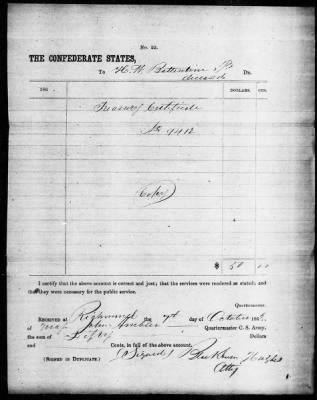 No. 22.
THE CONFEDERATE STATES,
To H. W. Dr.
deceased
186 DOLLARS. CTS.
Treasury Certificate
No 9412
(Copy)
$ 50 00
I certify that the above account is correct and just; that the services were rendered as stated; and
that they were necessary for the public service.
Quartermaster.
RECEIVED AT Richmond the 7th day of October 186
of Maj John Ambler Quartermaster C. S. Army,
the sum of Fifty Dollars
and Cents, in full of the above account.
(SIGNED IN DUPLICATE.) (Signed)
Atty